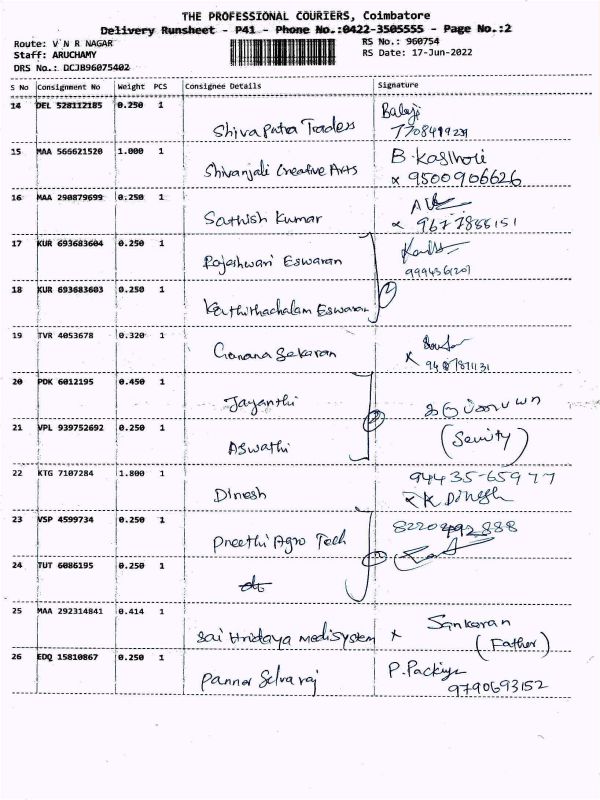 THE PROFESSIONAL COURIERS, Coimbatore
Delivery Runsheet - P41 - Phone No.:0422-3505555 - Page No.:2
Route: V N R NAGAR RS No.: 960754
Staff: ARUCHAMY RS Date: 17-Jun-2022
DRS No.: DCJB96075402
S No Consignment No Weight PCS Consignee Details Signature
14 DEL 528112185 0.250 1 Shiva Putra Traders Balaji
7708499239
15 MAA 566621520 1.000 1 Shivanjali Creative Arts B. Kasthori
x 9500906626
16 MAA 290879699 0.250 1 Sathish Kumar
x 9677886151
17 KUR 693683604 0.250 1 Rajeshwari Eswaran
9994361201
18 KUR 693683603 0.250 1 Kathithachalam Eswaran 2
19 TVR 4053678 0.320 1 Gnana Sekaran
x
20 PDK 6012195 0.450 1 Jayanthi
21 VPL 939752692 0.250 1 Aswathi 2 (Seurity)
22 KTG 7107284 1.800 1 Dinesh 94435-65977
RK Dinesh
23 VSP 4599734 0.250 1 Preethi Agro Tech 8220292888
24 TUT 6086195 0.250 1 dt
25 MAA 292314841 0.414 1 Sai Hridaya Medisystem x Sankaran
(Father)
26 EDQ 15810867 0.250 1 Pannar Selvaraj P. Packiya
9790693152